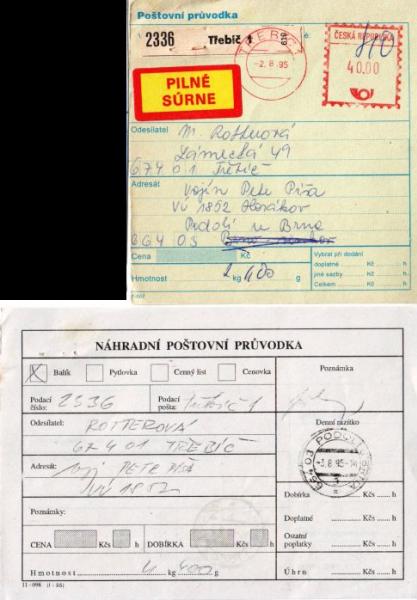 Poštovní průvodka
2336 Třebíč 1 619
TŘEBÍČ 1
-2.8.95
ČESKÁ REPUBLIKA
40.00
PILNÉ
SÛRNE
Odesílatel M.
Zámecká 49
674 01 Třebíč
Adresát Vojín Petr Píša
VÚ 1852
Podolí u Brna
664 03
Cena Kč h
Hmotnost kg 400 g
Vybrat při dodání
doplatné Kč h
jiné sazby Kč h
Celkem Kč h
NÁHRADNÍ POŠTOVNÍ PRŮVODKA
Balík Pytlovka Cenný list Cenovka
Poznámka
Podací číslo: 2336 Podací pošta: Třebíč 1
Denní razítko
Odesílatel: ROTTEROVÁ
674 01 TŘEBÍČ
664 03 PODOLÍ U BRNA
-3.8.95-
Adresát: voj. PETR PÍŠA
VÚ 1852
Dobírka Kčs h
Poznámky:
Doplatné Kčs h
CENA Kčs h DOBÍRKA Kčs h
Ostatní poplatky Kčs h
Hmotnost 4 kg 400 g
Úhrn Kčs h
11-098